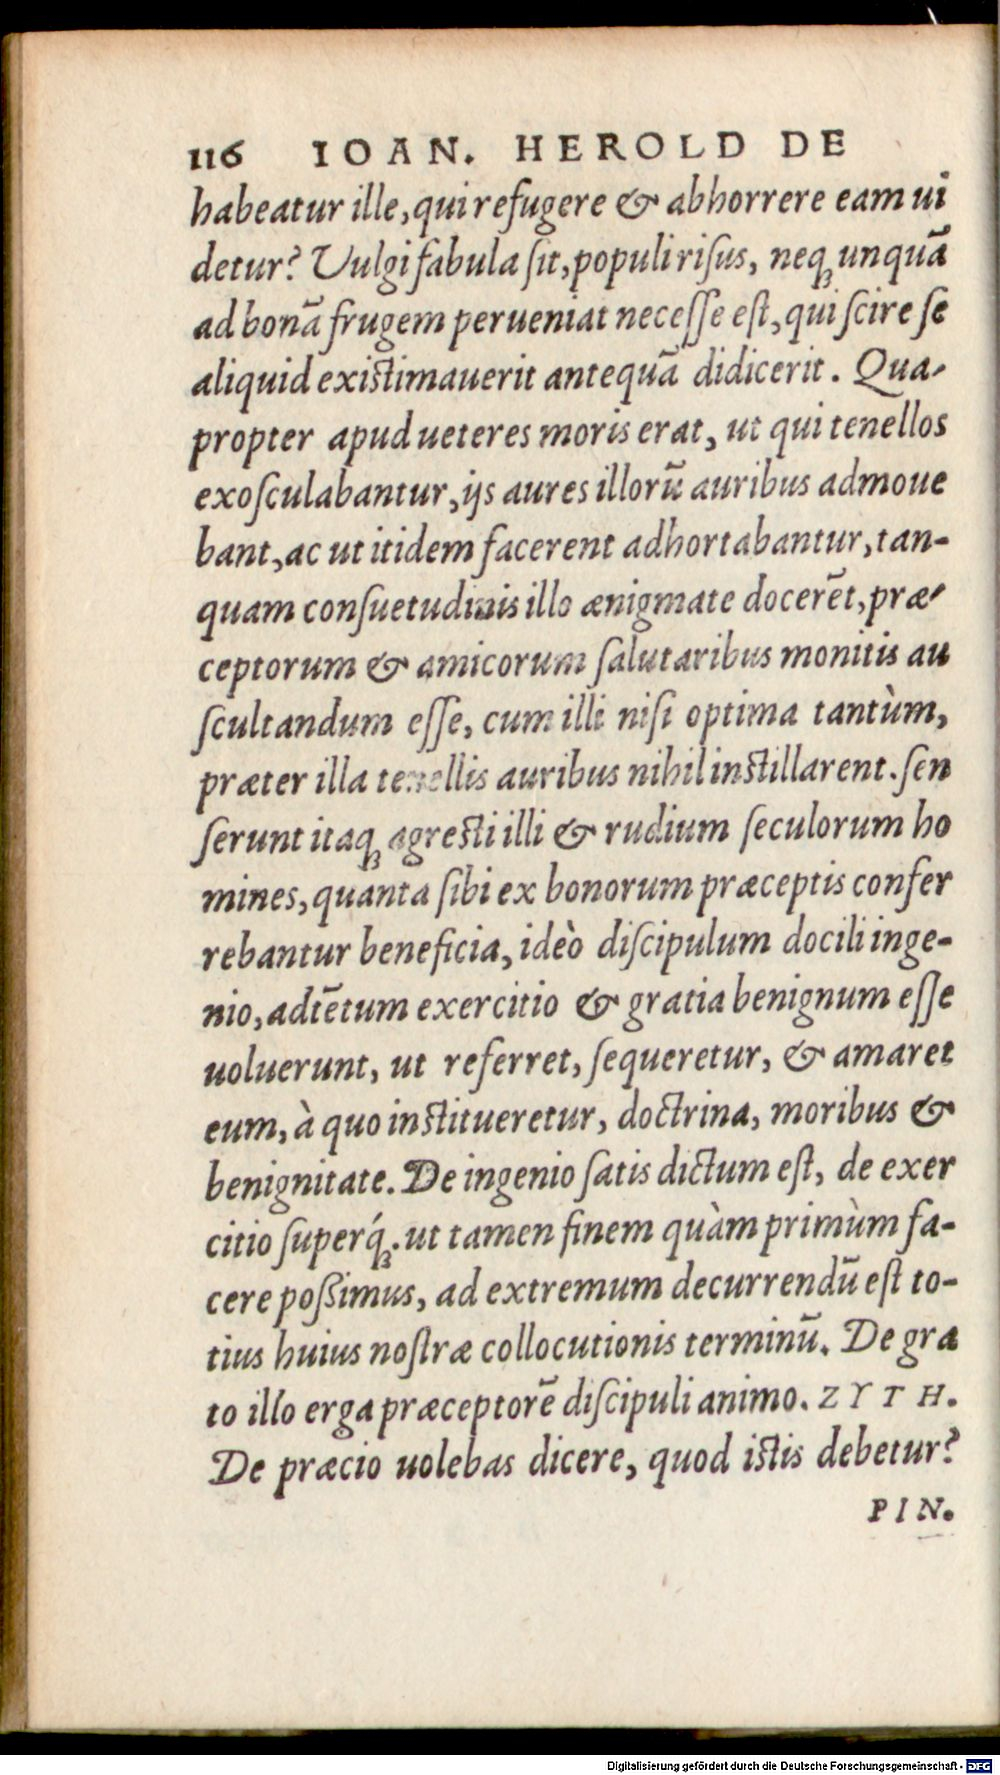 116 IOAN. HEROLD DE
habeatur ille, qui refugere & abhorrere eam ui
detur? Vulgi fabula ſit, populi riſus, neqꝫ unquā
ad bonā frugem perueniat neceſſe eſt, qui ſcire ſe
aliquid existimauerit antequā didicerit. Qua-
propter apud ueteres moris erat, ut qui tenellos
exoſculabantur, ijs aures illorū auribus admoue
bant, ac ut itidem facerent adhortabantur, tan-
quam conſuetudinis illo ænigmate docerēt, præ-
ceptorum & amicorum ſalutaribus monitis au
ſcultandum eſſe, cum illi niſi optima tantùm,
præter illa tenellis auribus nihil instillarent. ſen
ſerunt itaqꝫ agresti illi & rudium ſeculorum ho
mines, quanta ſibi ex bonorum præceptis confer
rebantur beneficia, ideò diſcipulum docili inge-
nio, adtētum exercitio & gratia benignum eſſe
uoluerunt, ut referret, ſequeretur, & amaret
eum, à quo institueretur, doctrina, moribus &
benignitate. De ingenio ſatis dictum eſt, de exer
citio ſuperq́ꝫ. ut tamen finem quàm primùm fa-
cere poßimus, ad extremum decurrendū eſt to-
tius huius noſtræ collocutionis terminū. De gra
to illo erga præceptorē diſcipuli animo. ZYTH.
De præcio uolebas dicere, quod istis debetur?
PIN.
Digitalisierung gefördert durch die Deutsche Forschungsgemeinschaft - DFG